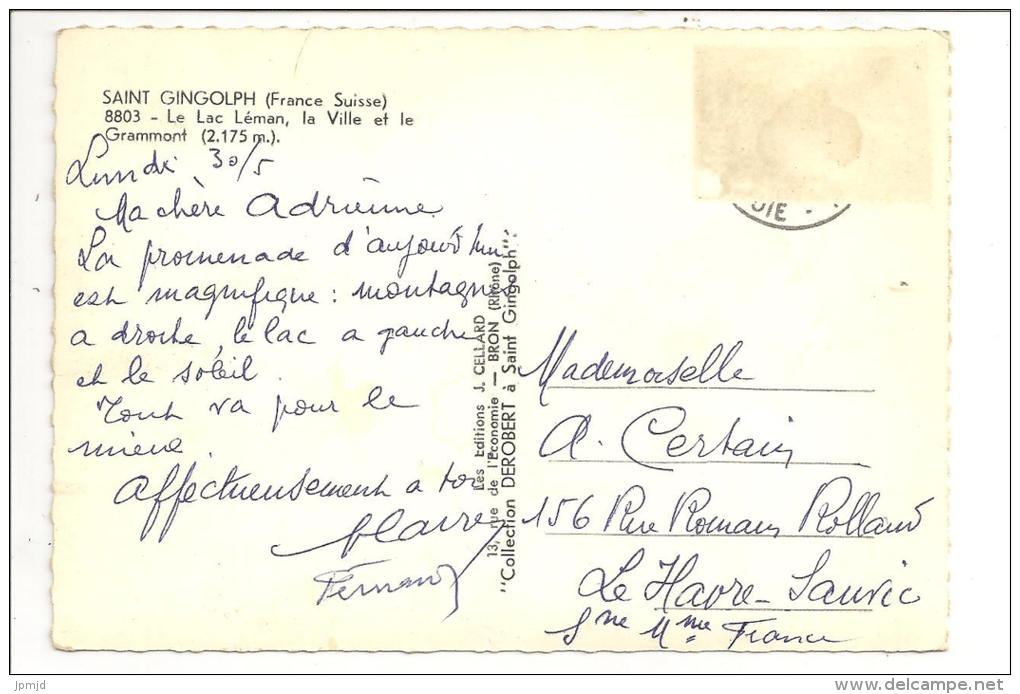 SAINT GINGOLPH (France Suisse)
8803 - Le Lac Léman, la Ville et le
Grammont (2.175 m.).
Lundi 30/5
Ma chère Adrienne
La promenade d'aujourd'hui
est magnifique : montagnes
a droite, le lac a gauche
et le soleil.
Tout va pour le
mieux
Affectueusement a toi
Fernand
Les Editions J. CELLARD
13, rue de l'Economie — BRON (Rhône)
"Collection DEROBERT à Saint Gingolph".
OIE
Mademoiselle
A. Certain
156 Rue Romain Rolland
Le Havre-Sanvic
Sne Mme France
jpmjd
delcampe.net